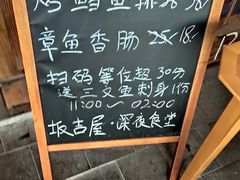 鳕鱼排
章鱼香肠 25 18/
扫码等位超30分
送三文鱼刺身1份
11:00～02:00
坂吉屋·深夜食堂